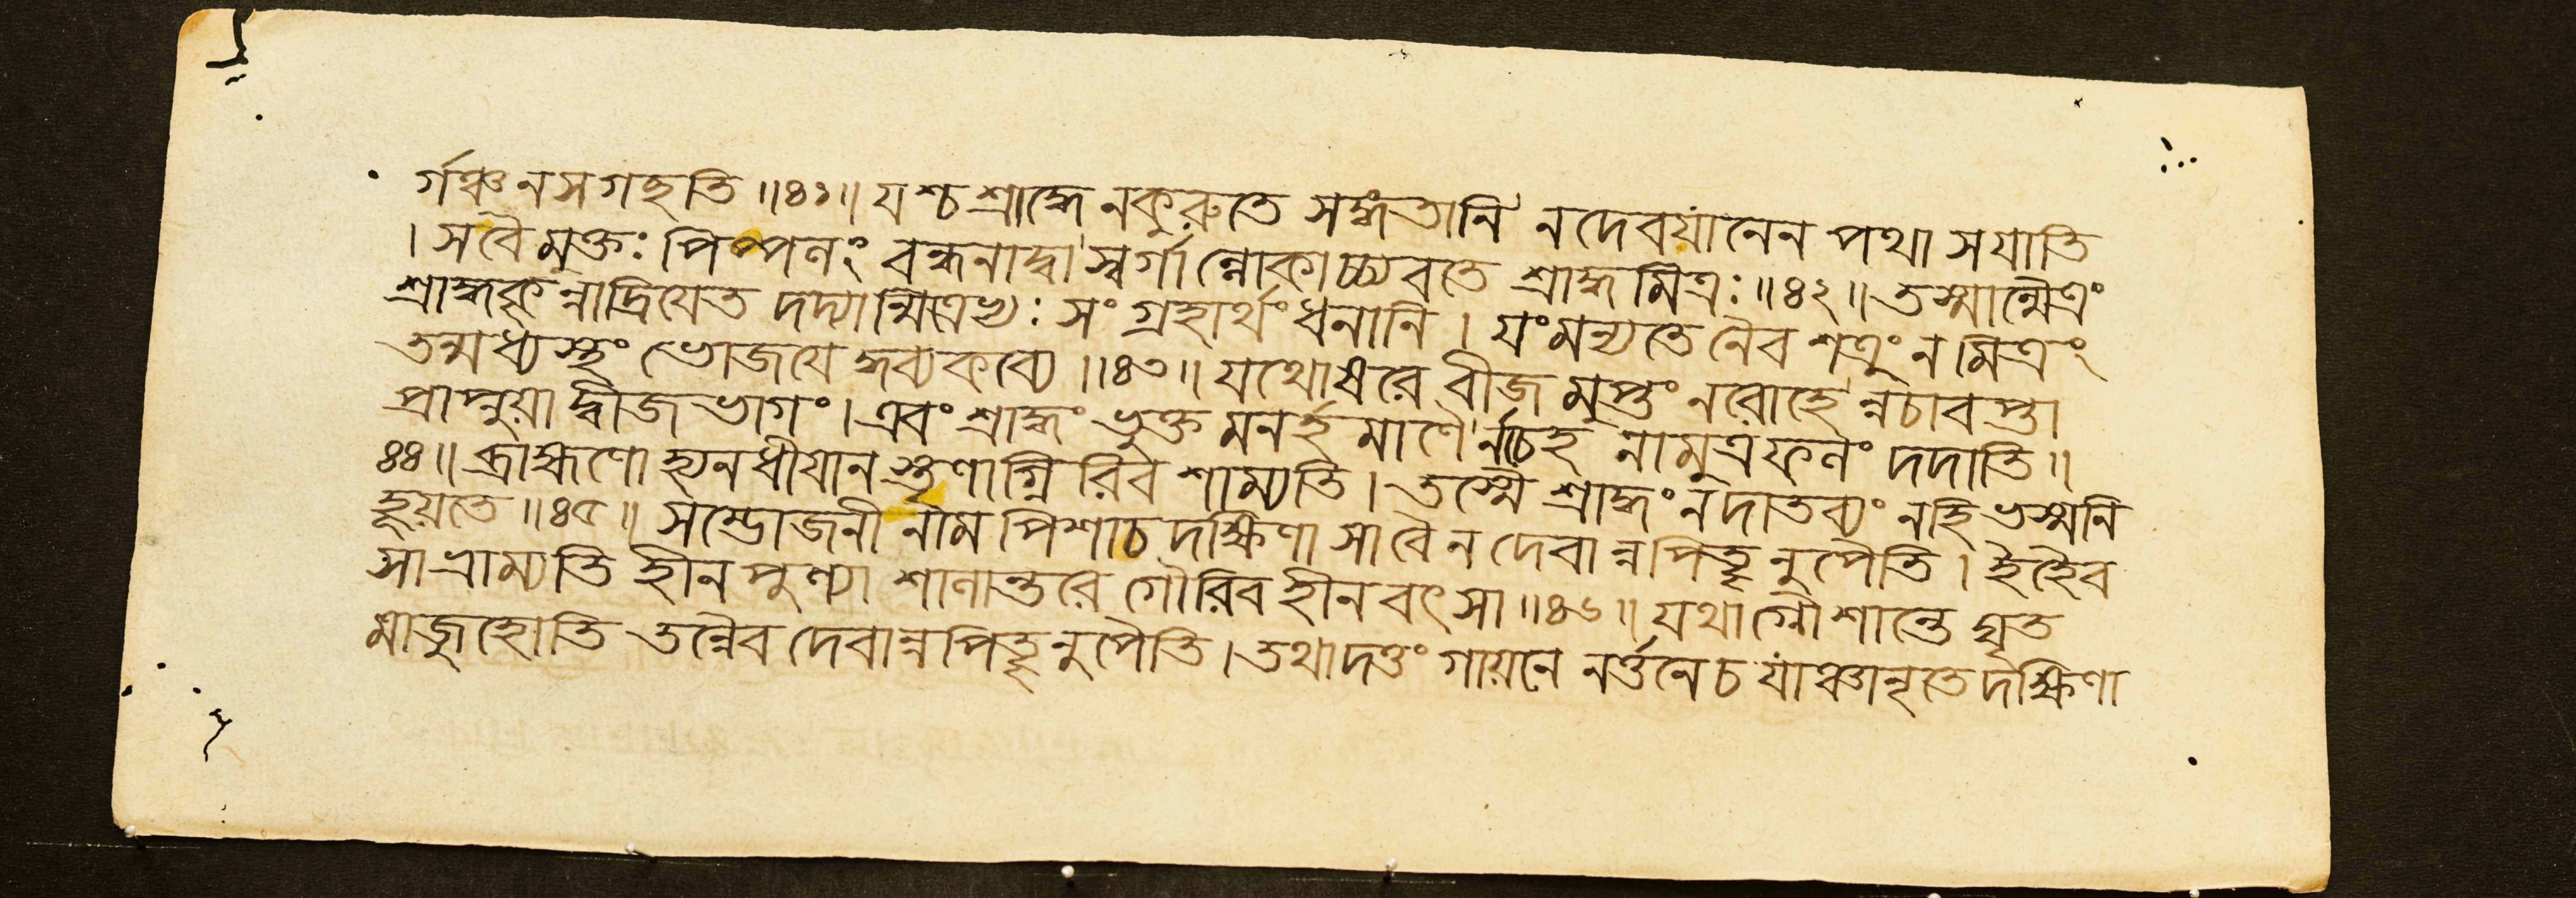 র্গঞ্চ ন স গচ্ছতি ॥৪১॥ যশ্চ শ্রাদ্ধে ন কুরুতে সঙ্গতানি ন দেবযানেন পথা স যাতি
। স বৈ মুক্তঃ পিপ্পলং বন্ধনাদ্বা স্বর্গাল্লোকাচ্চ্যবতে শ্রাদ্ধমিত্রঃ ॥৪২॥ তস্মান্মৈত্রং
শ্রাদ্ধকৃন্নাদ্রিয়েত দদ্যান্মিত্রেভ্যঃ সংগ্রহার্থং ধনানি । যং মন্যতে নৈব শত্রুং ন মিত্রং
তন্মধ্যস্থং ভোজয়েদ্ধব্যকব্যে ॥৪৩॥ যথোষরে বীজমুপ্তং ন রোহেন্নচাবপ্তা
প্রাপ্নুয়াদ্বীজভাগং । এবং শ্রাদ্ধং ভুক্তমনর্হমাণৈর্নচেহ নামুত্র ফলং দদাতি ॥
৪৪॥ ব্রাহ্মণো হ্যনধীয়ানস্তৃণাগ্নিরিব শাম্যতি । তস্মৈ শ্রাদ্ধং ন দাতব্যং নহি ভস্মনি
হূয়তে ॥৪৫॥ সম্ভোজনী নাম পিশাচদক্ষিণা সা বৈ ন দেবান্ন পিতৄনুপৈতি । ইহৈব
সা ভ্রাম্যতি হীনপুণ্যা শালান্তরে গৌরিব হীনবৎসা ॥৪৬॥ যথাগ্নৌ শান্তে ঘৃত
মাজুহোতি তন্নৈব দেবান্ন পিতৄনুপৈতি । তথা দত্তং গায়নে নর্ত্তনে চ যাঞ্চানৃতে দক্ষিণা